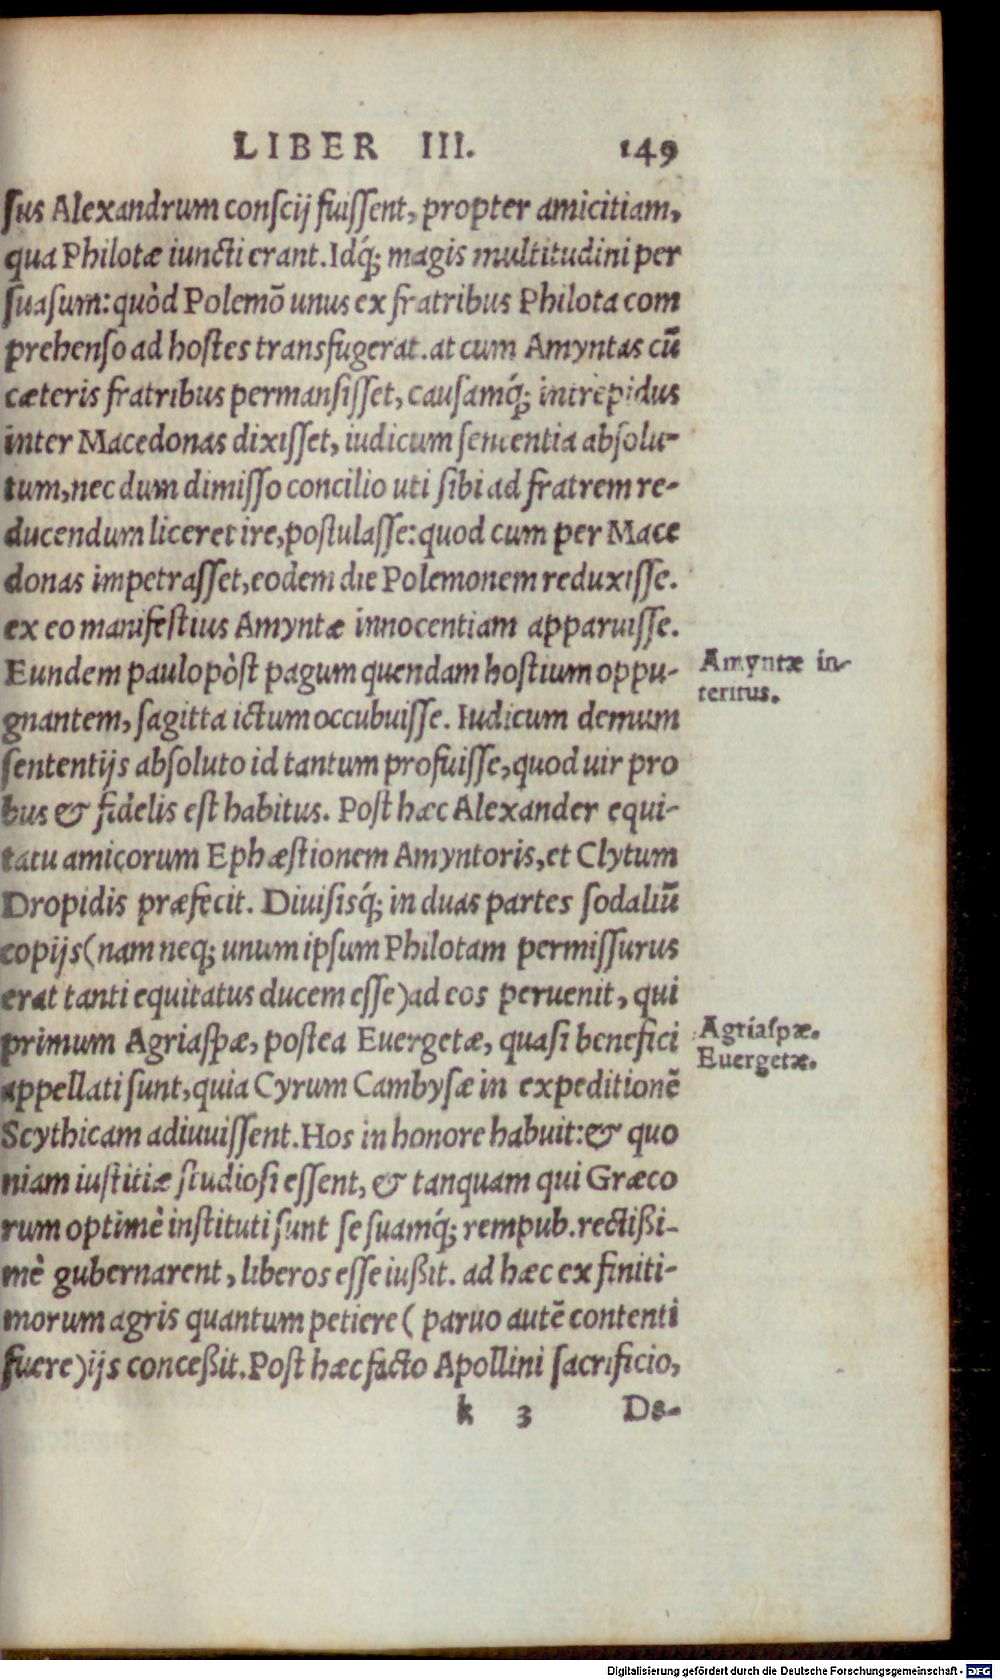 LIBER III. 149
sus Alexandrum conscij fuissent, propter amicitiam,
qua Philotæ iuncti erant. Idq́; magis multitudini per
suasum: quòd Polemõ unus ex fratribus Philota com
prehenso ad hostes transfugerat. at cum Amyntas cũ
cæteris fratribus permansisset, causamq́; intrepidus
inter Macedonas dixisset, iudicum sententia absolu-
tum, nec dum dimisso concilio uti sibi ad fratrem re-
ducendum liceret ire, postulasse: quod cum per Mace
donas impetrasset, eodem die Polemonem reduxisse.
ex eo manifestius Amyntæ innocentiam apparuisse.
Eundem paulo pòst pagum quendam hostium oppu-
gnantem, sagitta ictum occubuisse. Iudicum demum
sententijs absoluto id tantum profuisse, quod uir pro
bus & fidelis est habitus. Post hæc Alexander equi-
tatu amicorum Ephæstionem Amyntoris, et Clytum
Dropidis præfecit. Diuisisq́; in duas partes sodaliũ
copijs (nam neq; unum ipsum Philotam permissurus
erat tanti equitatus ducem esse) ad eos peruenit, qui
primum Agriaspæ, postea Euergetæ, quasi benefici
appellati sunt, quia Cyrum Cambysæ in expeditionẽ
Scythicam adiuuissent. Hos in honore habuit: & quo
niam iustitiæ studiosi essent, & tanquam qui Græco
rum optimè instituti sunt se suamq́; rempub. rectißi-
mè gubernarent, liberos esse iußit. ad hæc ex finiti-
morum agris quantum petiere (paruo autẽ contenti
fuere) ijs conceßit. Post hæc facto Apollini sacrificio,
k 3 De-
Amyntæ in-
teritus.
Agriaspæ.
Euergetæ.
Digitalisierung gefördert durch die Deutsche Forschungsgemeinschaft - DFG